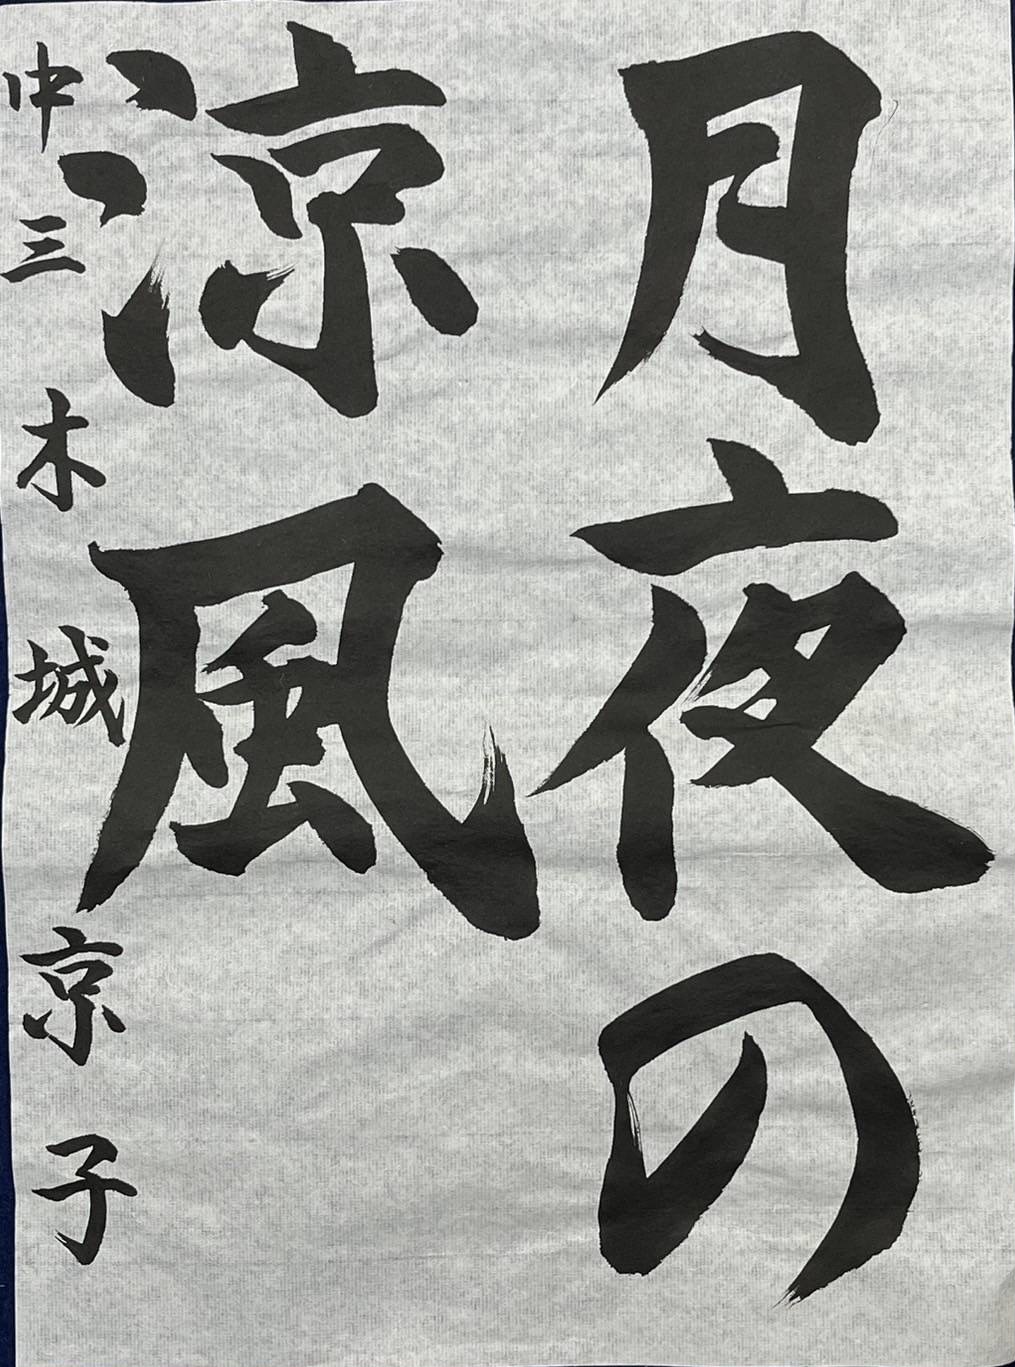 月夜の
涼風
中三 木城京子